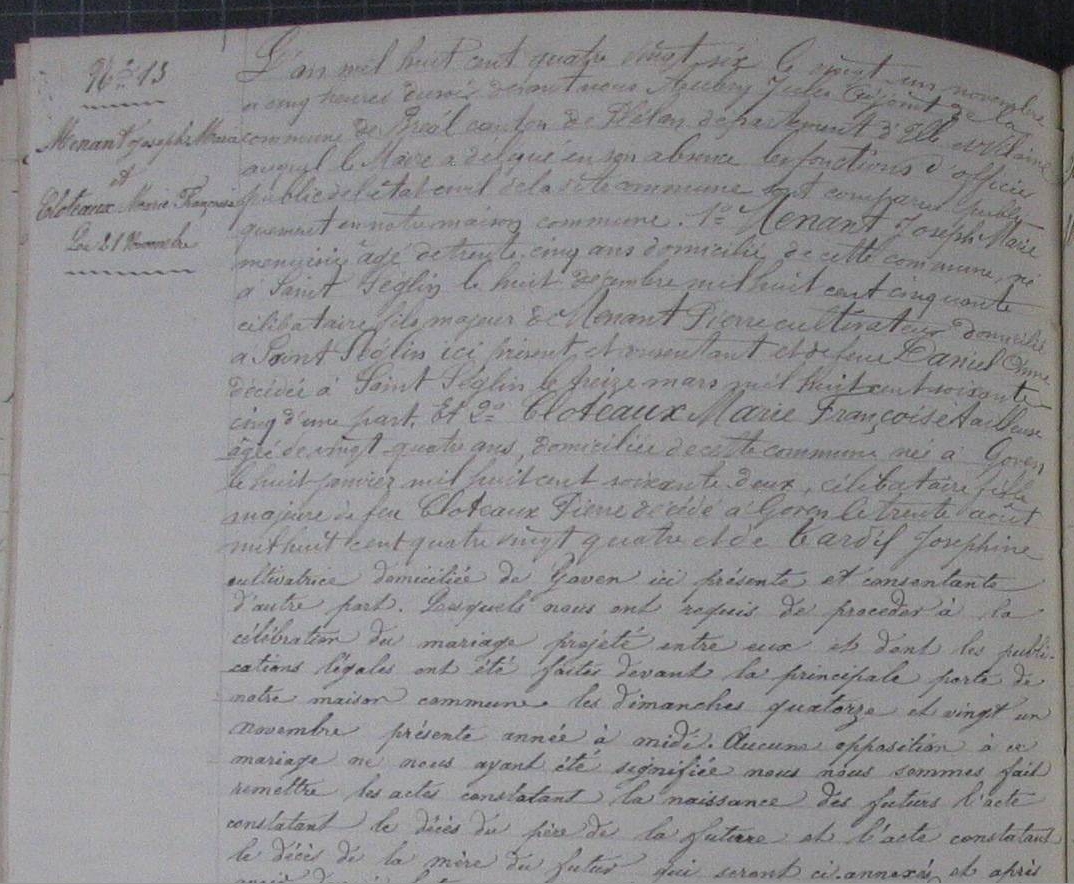 No 13
Menant Joseph Marie
et
Cloteaux Marie Françoise
Le 21 Novembre
L'an mil huit cent quatre vingt six le vingt un novembre
a cinq heures du soir devant nous Aubry Jules adjoint de la
commune de Bréal canton de Plélan département d'Ille et Vilaine
auquel le Maire a délégué en son absence les fonctions d'officier
public de l'état civil de la dite commune sont comparus publi
quement en notre maison commune. 1o Menant Joseph Marie
menuisier âgé de trente cinq ans domicilié de cette commune, né
à Saint Séglin le huit décembre mil huit cent cinquante
célibataire fils majeur de Menant Pierre cultivateur domicilié
a Saint Séglin ici présent et consentant et de feue Daniel Anne
décédée à Saint Séglin le treize mars mil huit cent soixante
cinq d'une part. Et 2o Cloteaux Marie Françoise tailleuse
âgée de vingt quatre ans, domiciliée de cette commune née à Goven
le huit janvier mil huit cent soixante deux, célibataire fille
majeure de feu Cloteaux Pierre décédé à Goven le trente août
mil huit cent quatre vingt quatre et de Tardif Joséphine
cultivatrice domiciliée de Goven ici présente et consentante
d'autre part. Lesquels nous ont requis de procéder à la
célébration du mariage projeté entre eux et dont les publi-
cations légales ont été faites devant la principale porte de
notre maison commune les dimanches quatorze et vingt un
novembre présente année à midi. Aucune opposition à ce
mariage ne nous ayant été signifiée nous nous sommes fait
remettre les actes constatant la naissance des futurs l'acte
constatant le décès du père de la future et l'acte constatant
le décès de la mère du futur qui seront ci-annexés et après